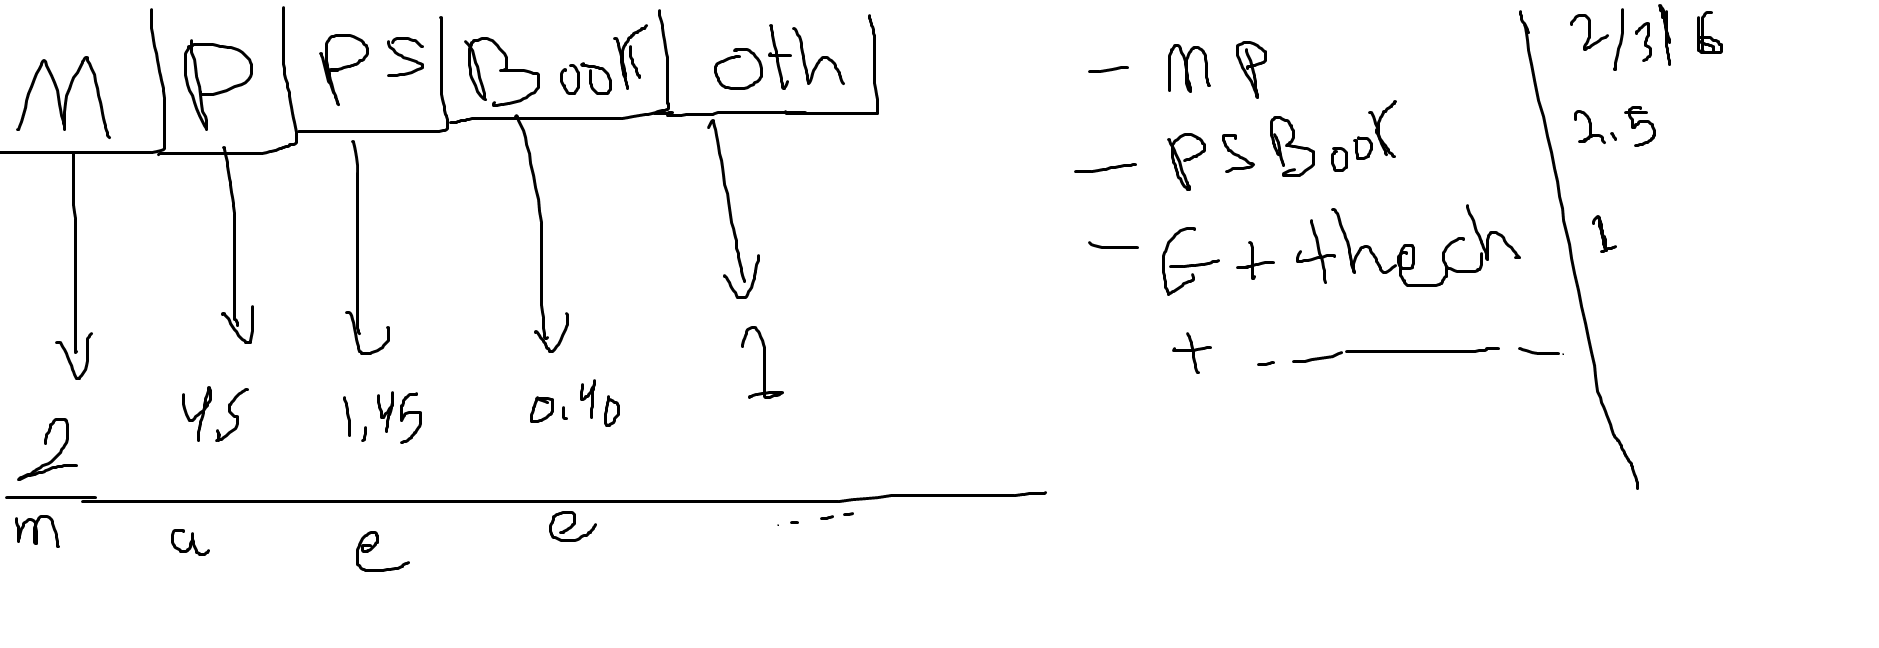 M P PS Book oth
2 4,5 1,45 0.40 1
m a e e ....
- MP 2/3/6
- PS Book 2.5
- E + thech 1
+ - - - -